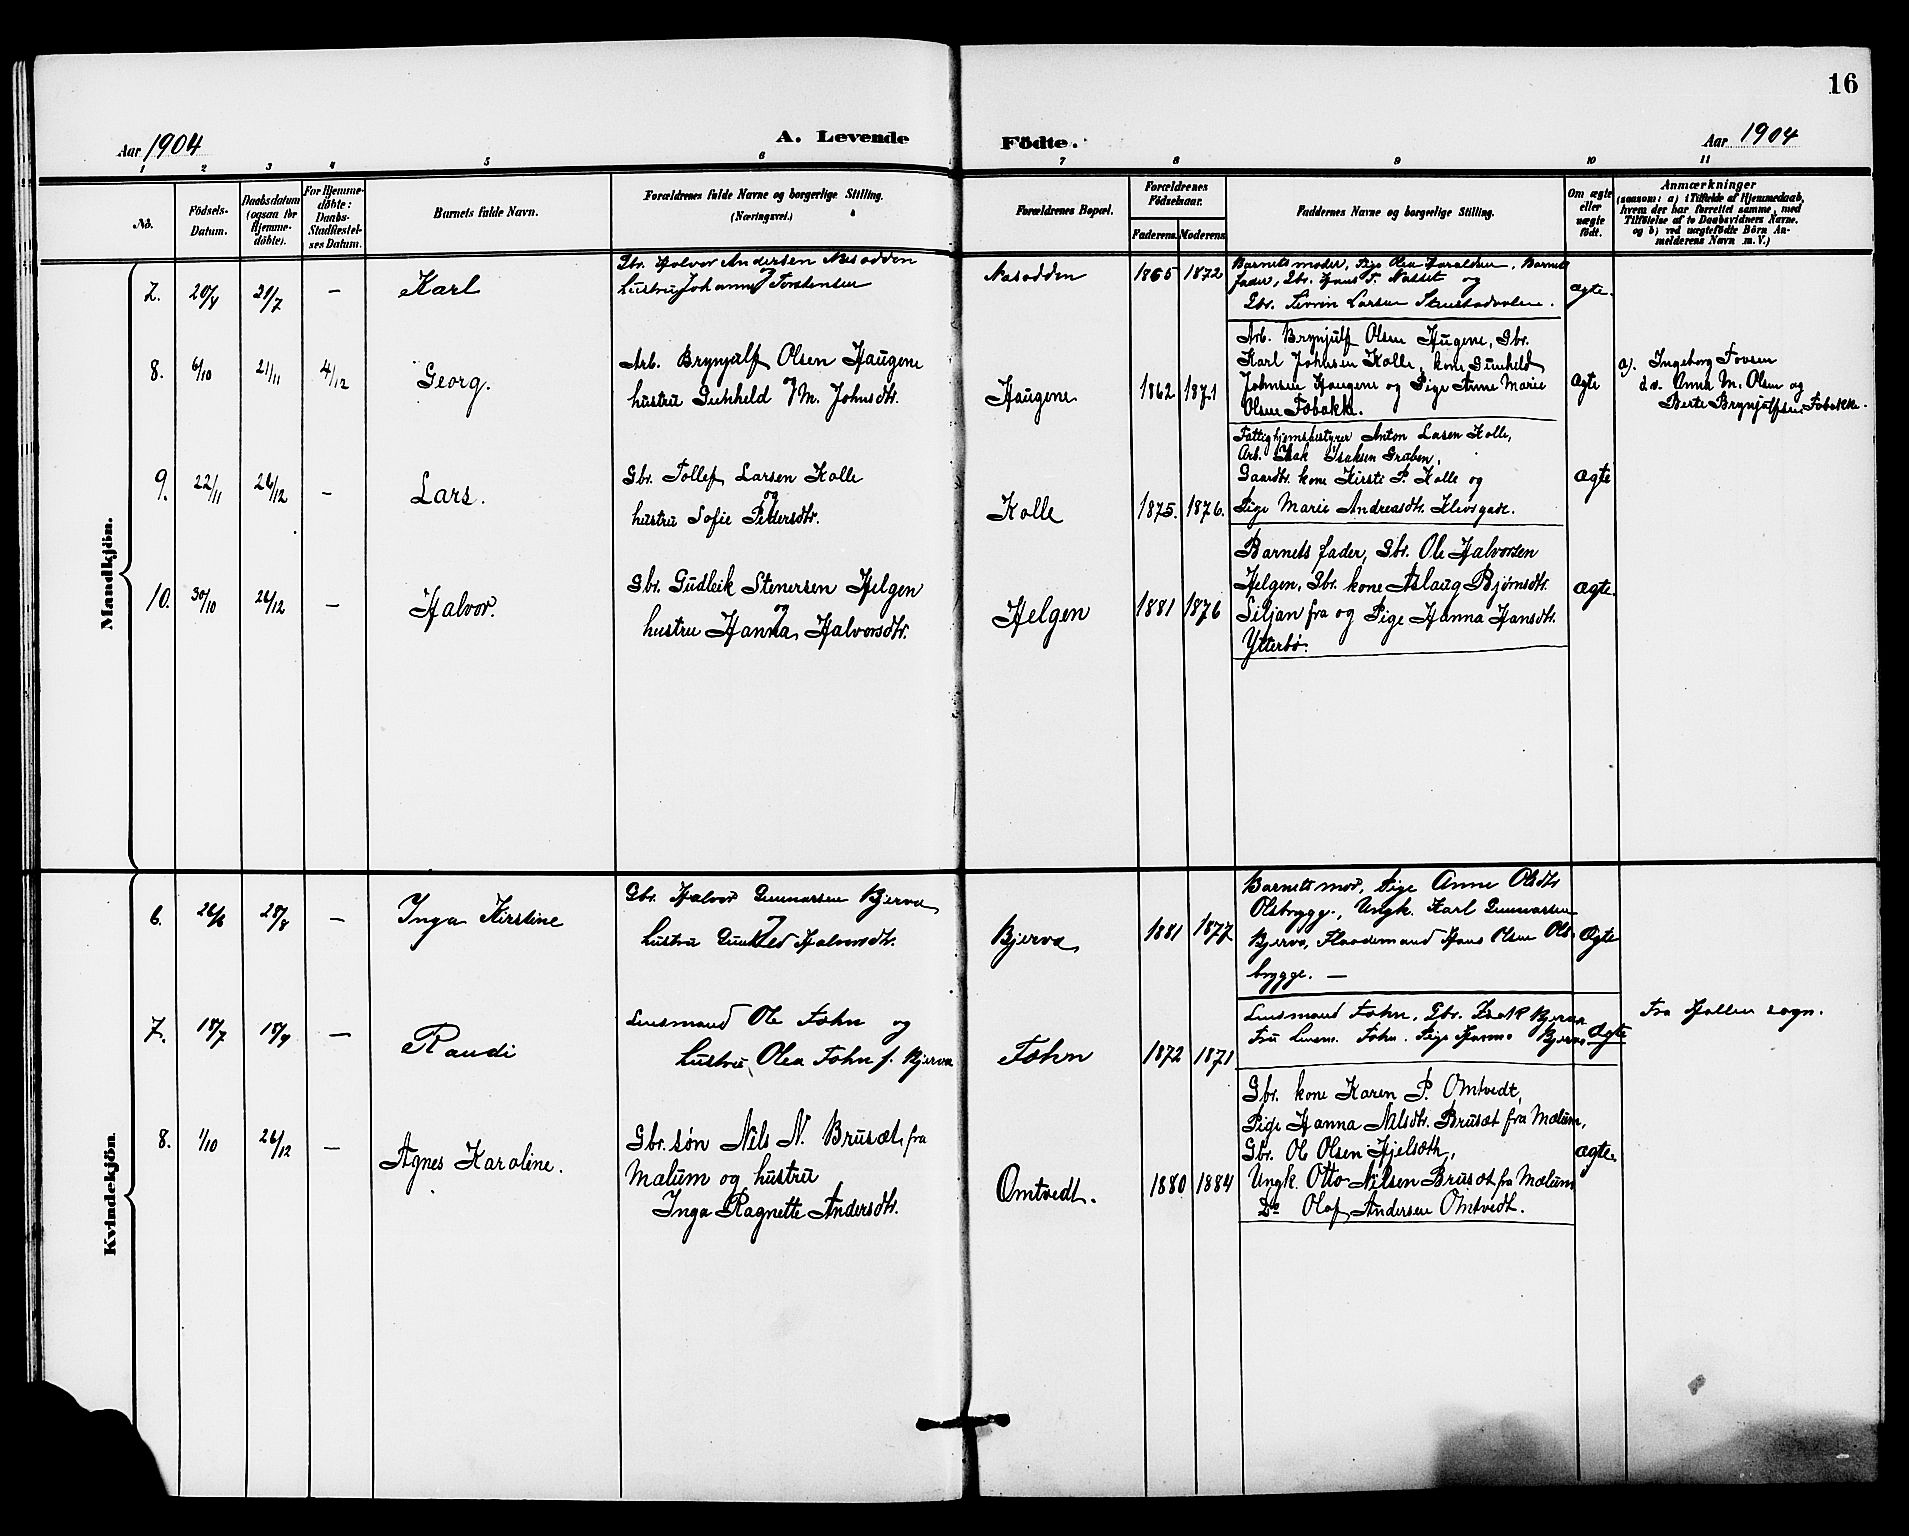 16
Aar 1904
A. Levende Födte.
Aar 1904
1 2 3 4 5 6 7 8 9 10 11
No.
Födsels-
Datum.
Daabsdatum
(ogsaa for
Hjemme-
döbte).
For Hjemme-
döbte:
Daabs-
Stadfæstel-
ses Datum.
Barnets fulde Navn.
Forældrenes fulde Navne og borgerlige Stilling.
(Næringsvei.)
Forældrenes Bopæl.
Forældrenes
Födselsaar.
Faderens. Moderens.
Faddernes Navne og borgerlige Stilling.
Om ægte
eller
uægte
födt.
Anmærkninger
(saasom: a) i Tilfælde af Hjemmedaab,
hvem der har forrettet samme, med
Tilföielse af to Daabsvidners Navne.
og b) ved uægtefödte Börn An-
melderens Navn m. V.)
Mandkjön.
7. 20/8 21/7 — Karl
Gbr. Halvor Andersen Næsodden
hustru Johanne Torstensen
Næsodden 1865 1872
Barnets moder, Pige Olea Haraldsen, Barnets
fader, Gbr. Hans T. Næsset og
Gbr. Severin Larsen
ægte.
8. 6/10 21/11 4/12 Georg.
Arb. Brynjulf Olsen Haugene
og
hustru Gunhild M. Johnsdtr.
Haugene 1862 1871
Arb. Brynjulf Olsen Haugene, Gbr.
Karl Johnsen Kolle, kone Gunhild
Johnsen Haugene og Pige Anne Marie
Olsen Tobakk.
ægte
a). Ingeborg Fossen
d.v. Anna M. Olsen og
Berte Brynjulfsen Tobakk.
9. 22/11 26/12 — Lars.
Gbr. Tollef Larsen Kolle
og
hustru Sofie Pedersdtr.
Kolle 1875. 1876.
Fattighjemsbestyrer Anton Lasen Kolle,
Arb. Isak Isaksen Graben,
Gaardbr. kone Kirsti P. Kolle og
Pige Marie Andreasdtr.
ægte
10. 30/10 26/12 — Halvor.
Gbr. Gudleik Stenersen Helgen
og
hustru Hanna Halvorsdtr.
Helgen 1881 1876
Barnets fader, Gbr. Ole Halvorsen
Helgen, Gbr. kone Aslaug Bjørnsdtr.
Siljan fra og Pige Hanna Hansdtr.
Ytterbø.
ægte.
Kvindekjön.
6. 26/6 28/8 — Inga Kirstine
Gbr. Halvor Gunnarsen Bjerva
og
hustru Gunhild Halvorsdtr.
Bjerva 1881 1877
Barnets mor, Pige Anne Olsdtr
Olsbrygge, Ungk. Karl Gunnarsen
Bjerva, Flaademand Hans Olsen Ols-
brygge. —
ægte
7. 18/7 18/9 — Randi
Lensmand Ole Tohn og
hustru Olea Tohn f. Bjerva
Tohn 1872 1871
Lensmand Tohn, Gbr. Isak Bjerva
Fru Lensm. Tohn. Pige Hanna Bjerva
ægte
Fra Hollen sogn.
8. 1/10 26/12 — Agnes Karoline.
Gbr. søn Nils N. Brusæt fra
Mælum og hustru
Inga Ragnette Andersdtr.
Omtvedt. 1880 1884
Gbr. kone Karen P. Omtvedt,
Pige Hanna Nilsdtr. Brusæt fra Mælum,
Gbr. Ole Olsen Hjelsæth,
Ungk. Otto Nilsen Brusæt fra Mælum
Do Olaf Andersen Omtvedt.
ægte.